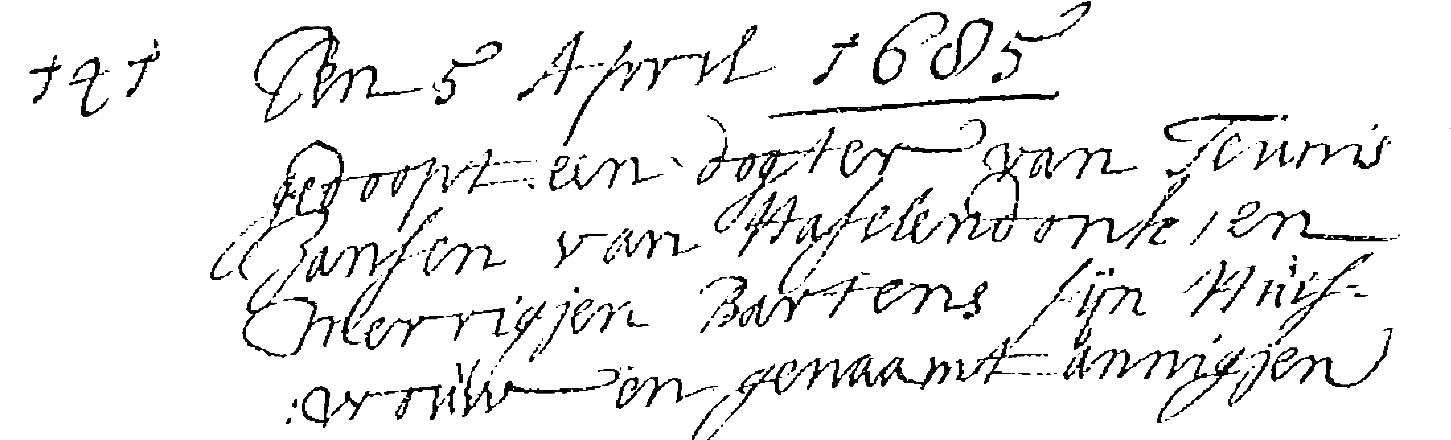 121 Den 5 April 1685
gedoopt een dogter van Teunis
Jansen van Haselendonk, en
Merrigjen Bartens sijn Huis-
vrouw en genaamt annigjen